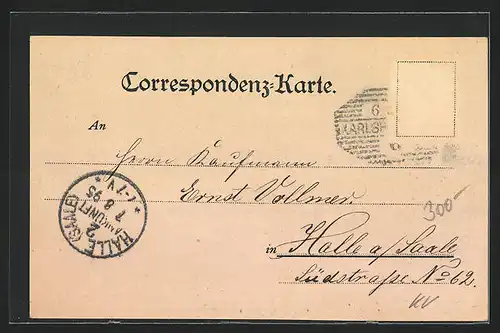 Correspondenz-Karte.
6
KARLSR
An
Herrn Kaufmann
Ernst Vollmer.
in Halle a/Saale
Südstraße No 62.
300-
HALLE
(SAALE)
2
ANKUNFT
7 8 95
1-7V